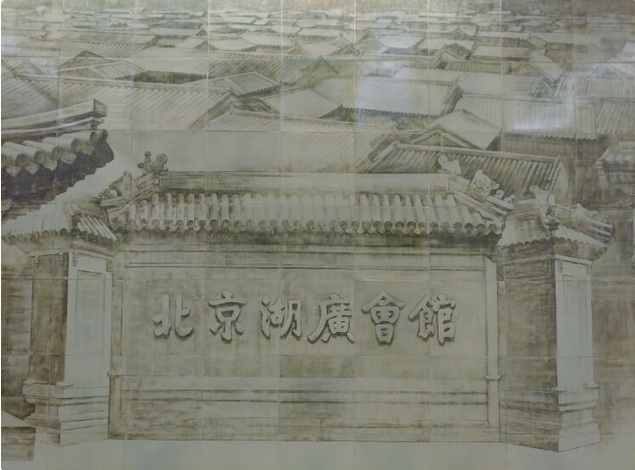 北京湖廣會館